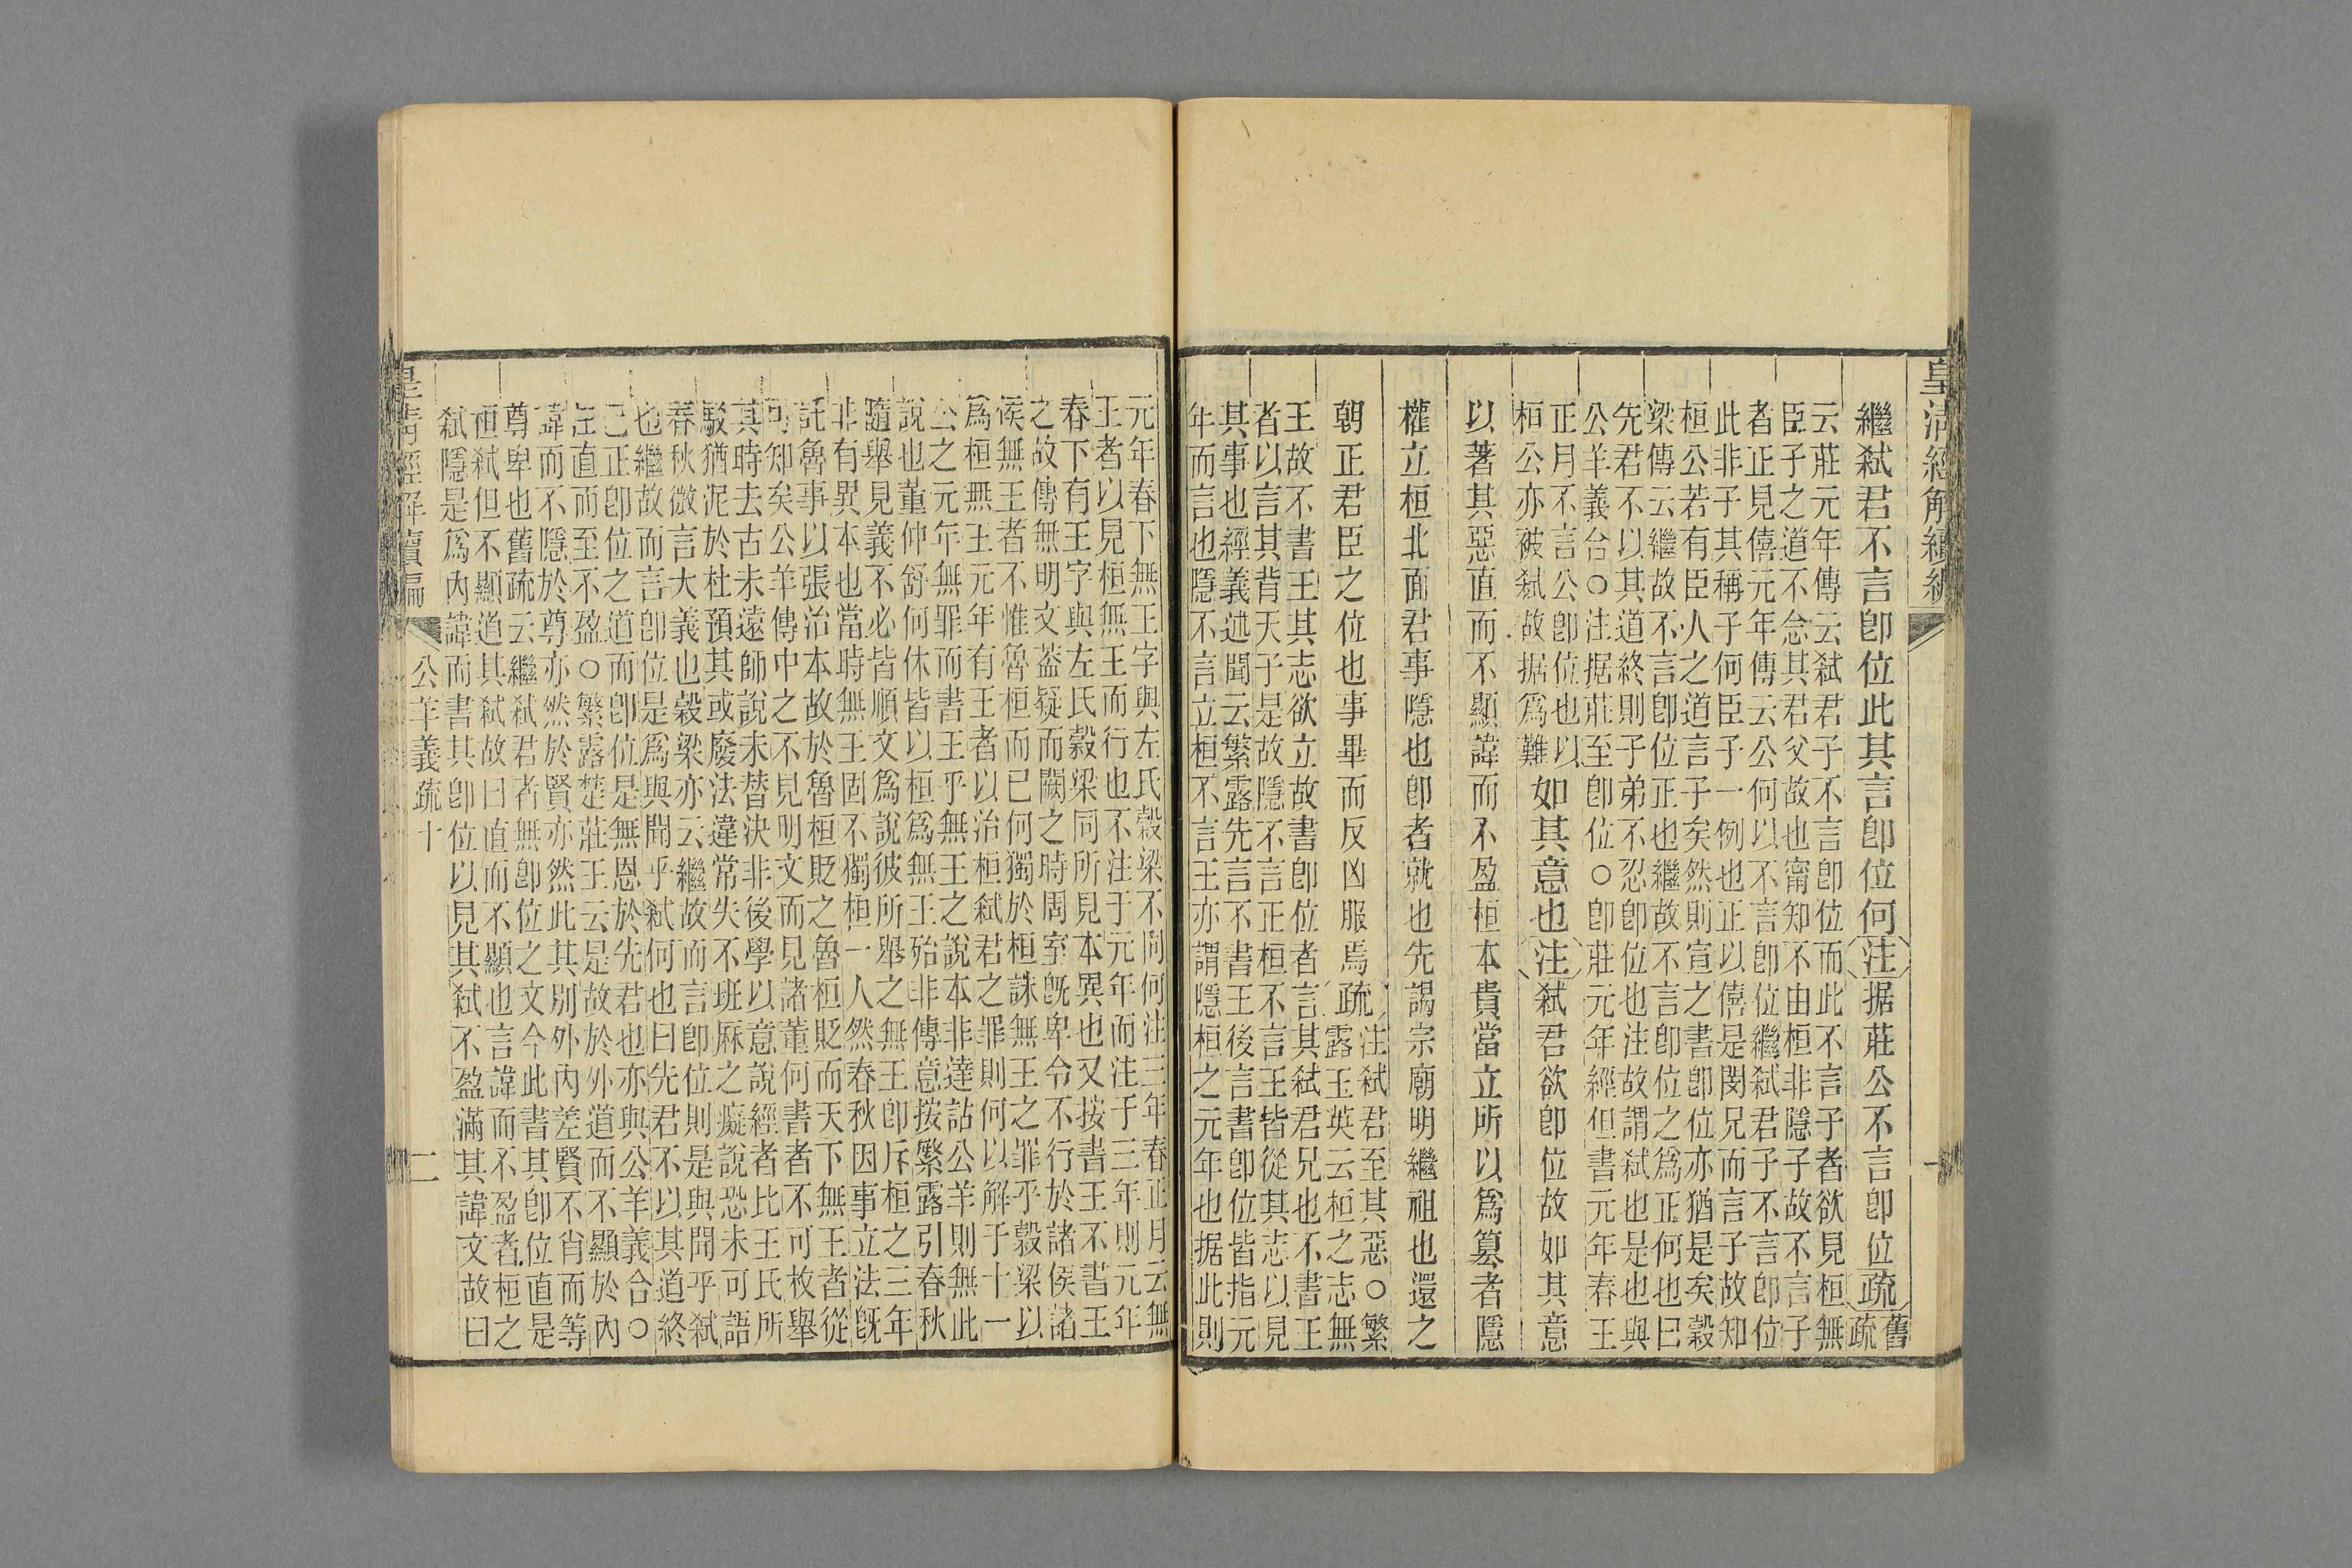 皇清經解續編
繼弑君不言卽位此其言卽位何注据莊公不言卽位疏舊疏
云莊元年傳云弑君子不言卽位而此不言子者欲見桓無
臣子之道不念其君父故也甯知不由桓非隱子故不言子
者正見僖元年傳云公何以不言卽位繼弑君子不言卽位
此非子其稱子何臣子一例也正以僖是閔兄而言子故知
桓公若有臣人之道言子矣然則宣之書卽位亦猶是矣穀
梁傳云繼故不言卽位正也繼故不言卽位之爲正何也曰
先君不以其道終則子弟不忍卽位也注故謂弑也是也與
公羊義合○注据莊至卽位○卽莊元年經但書元年春王
正月不言公卽位也以
桓公亦被弑故据爲難
如其意也注弑君欲卽位故如其意
以著其惡直而不顯諱而不盈桓本貴當立所以爲篡者隱
權立桓北面君事隱也卽者就也先謁宗廟明繼祖也還之
朝正君臣之位也事畢而反凶服焉疏
注弑君至其惡○繁
露玉英云桓之志無
王故不書王其志欲立故書卽位者言其弑君兄也不書王
者以言其背天子是故隱不言正桓不言王皆從其志以見
其事也經義述聞云繁露先言不書王後言書卽位皆指元
年而言也隱不言立桓不言王亦謂隱桓之元年也据此則
元年春下無王字與左氏穀梁不同何注三年春正月云無
王者以見桓無王而行也不注于元年而注于三年則元年
春下有王字與左氏穀梁同所見本異也又按書王不書王
之故傳無明文葢疑而闕之時周室旣卑令不行於諸侯諸
侯無王者不惟魯桓而已何獨於桓誅無王之罪乎穀梁以
爲桓無王元年有王者以治桓弑君之罪則何以解于十一
公之元年無罪而書王乎無王之說本非達詁公羊則無此
說也董仲舒何休皆以桓爲無王殆非傳意按繁露引春秋
隨舉見義不必皆順文爲說彼所舉之無王卽斥桓之三年
非有異本也當時無王固不獨桓一人然春秋因事立法旣
託魯事以張治本故於魯桓貶之魯桓貶而天下無王者從
可知矣公羊傳中之不見明文而見諸董何書者不可枚舉
其時去古未遠師說未替決非後學以意說經者比王氏所
駁猶泥於杜預其或廢法違常失不班厤之癡說恐未可語
春秋微言大義也穀梁亦云繼故而言卽位則是與聞乎弑
也繼故而言卽位是爲與聞乎弑何也曰先君不以其道終
已正卽位之道而卽位是無恩於先君也亦與公羊義合○
注直而至不盈○繁露楚莊王云是故於外道而不顯於內
諱而不隱於尊亦然於賢亦然此其別外內差賢不肖而等
尊卑也舊疏云繼弑君者無卽位之文今此書其卽位直是
桓弑但不顯道其弑故曰直而不顯也言諱而不盈者桓之
弑隱是爲內諱而書其卽位以見其弑不盈滿其諱文故曰
皇清經解續編 公羊義疏十 二